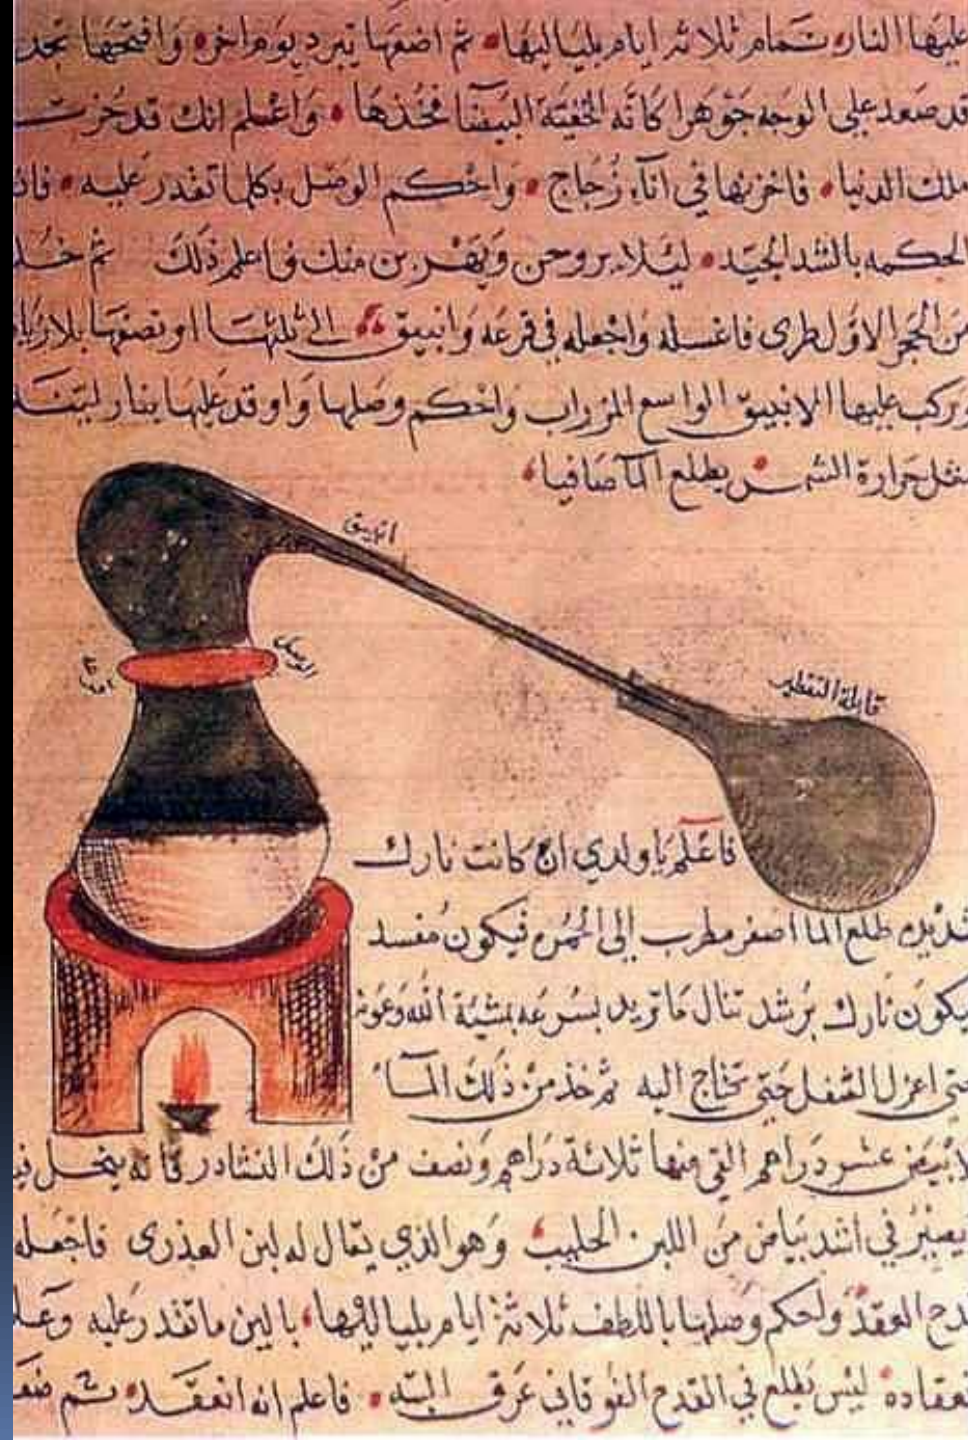 عليها النار تمام ثلاثة ايام بلياليها ثم اضعها تبرد يوم اخر وافتحها تجد
قد صعد على الوجه جوهرا كانه الخفية البيضا فخذها واعلم انك قد حزت
ملك الدنيا فاخزنها في اناء زجاج واحكم الوصل بكلما تقدر عليه فان
الحكمه بالشد الجيد ليلا يروحن ويهربن منك فاعلم ذلك ثم خذ
من الحجر الاول طرى فاغسله واجعله في قرعه وانبيق الى ثلثها او نصفها بلا زياد
وركب عليها الانبيق الواسع المزراب واحكم وصلها واوقد عليها بنار لينه
مثل حرارة الشمس يطلع الما صافيا
انبيق
الوصل
قابلة التقطير
فاعلم يا ولدي ان كانت نارك
شديده طلع الما اصفر مطرب الى الحمره فيكون مفسد
يكون نارك برشد تنال ما تريد بسرعه بمشية الله وعونه
حتى اعزل الثفل حتى تحتاج اليه ثم خذ من ذلك الما
لابيض عشر دراهم القي فيها ثلاثة دراهم ونصف من ذلك النشادر فانه ينحل فيه
يصير في اشد بياض من اللبن الحليب وهو الذي يقال له لبن العذرى فاجعله
قدح العقد ولحكم وصلها باللطف ثلاثة ايام بلياليها بالين ما تقدر عليه وعلا
نعقاده ليس يطلع في القدح الفوقاني عرق البته فاعلم انه انعقد ثم ضعه